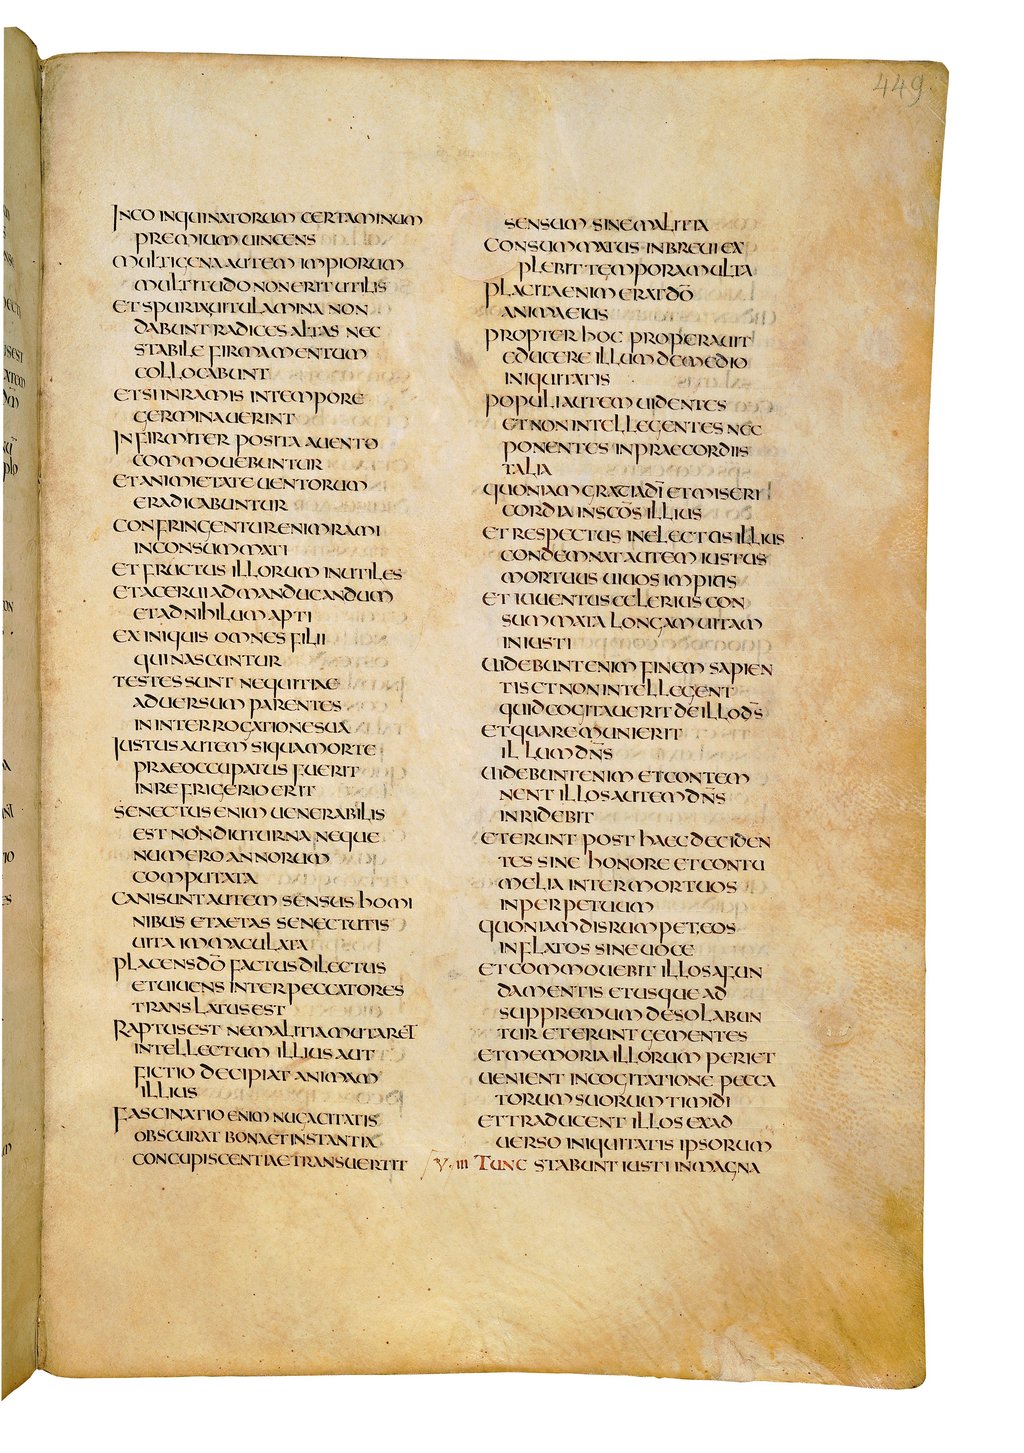 449
INCOINQUINATORUM CERTAMINUM
PREMIUM UINCENS
MULTIGENA AUTEM IMPIORUM
MULTITUDO NON ERIT UTILIS
ET SPURIA UITULAMINA NON
DABUNT RADICES ALTAS NEC
STABILE FIRMAMENTUM
COLLOCABUNT
ET SI IN RAMIS IN TEMPORE
GERMINAUERINT
INFIRMITER POSITA A UENTO
COMMOUEBUNTUR
ET A NIMIETATE UENTORUM
ERADICABUNTUR
CONFRINGENTUR ENIM RAMI
INCONSUMMATI
ET FRUCTUS ILLORUM INUTILES
ET ACERUI AD MANDUCANDUM
ET AD NIHILUM APTI
EX INIQUIS OMNES FILII
QUI NASCUNTUR
TESTES SUNT NEQUITIAE
ADUERSUM PARENTES
IN INTERROGATIONE SUA
IUSTUS AUTEM SI QUA MORTE
PRAEOCCUPATUS FUERIT
IN REFRIGERIO ERIT
SENECTUS ENIM UENERABILIS
EST NON DIUTURNA NEQUE
NUMERO ANNORUM
COMPUTATA
CANI SUNT AUTEM SENSUS HOMI
NIBUS ET AETAS SENECTUTIS
UITA IMMACULATA
PLACENS DŌ FACTUS DILECTUS
ET UIUENS INTER PECCATORES
TRANSLATUS EST
RAPTUS EST NE MALITIA MUTARET
INTELLECTUM ILLIUS AUT
FICTIO DECIPIAT ANIMAM
ILLIUS
FASCINATIO ENIM NUGACITATIS
OBSCURAT BONA ET INSTANTIA
CONCUPISCENTIAE TRANSUERTIT
SENSUM SINE MALITIA
CONSUMMATUS IN BREUI EX
PLEBIT TEMPORA MULTA
PLACITA ENIM ERAT DŌ
ANIMA EIUS
PROPTER HOC PROPERAUIT
EDUCERE ILLUM DE MEDIO
INIQUITATIS
POPULI AUTEM UIDENTES
ET NON INTELLEGENTES NEC
PONENTES IN PRAECORDIIS
TALIA
QUONIAM GRATIA DĪ ET MISERI
CORDIA IN SCŌS ILLIUS
ET RESPECTUS IN ELECTUS ILLIUS
CONDEMNAT AUTEM IUSTUS
MORTUUS UIUOS IMPIUS
ET IUUENTUS CELERIUS CON
SUMMATA LONGAM UITAM
INIUSTI
UIDEBUNT ENIM FINEM SAPIEN
TIS ET NON INTELLEGENT
QUID COGITAUERIT DE ILLO DN̄S
ET QUARE MUNIERIT
ILLUM DN̄S
UIDEBUNT ENIM ET CONTEM
NENT ILLOS AUTEM DN̄S
INRIDEBIT
ET ERUNT POST HAEC DECIDEN
TES SINE HONORE ET CONTU
MELIA INTER MORTUOS
IN PERPETUUM
QUONIAM DISRUMPET EOS
INFLATOS SINE UOCE
ET COMMOUEBIT ILLOS A FUN
DAMENTIS ET USQUE AD
SUPPREMUM DESOLABUN
TUR ET ERUNT GEMENTES
ET MEMORIA ILLORUM PERIET
UENIENT IN COGITATIONE PECCA
TORUM SUORUM TIMIDI
ET TRADUCENT ILLOS EX AD
UERSO INIQUITATIS IPSORUM
V·III TUNC STABUNT IUSTI IN MAGNA